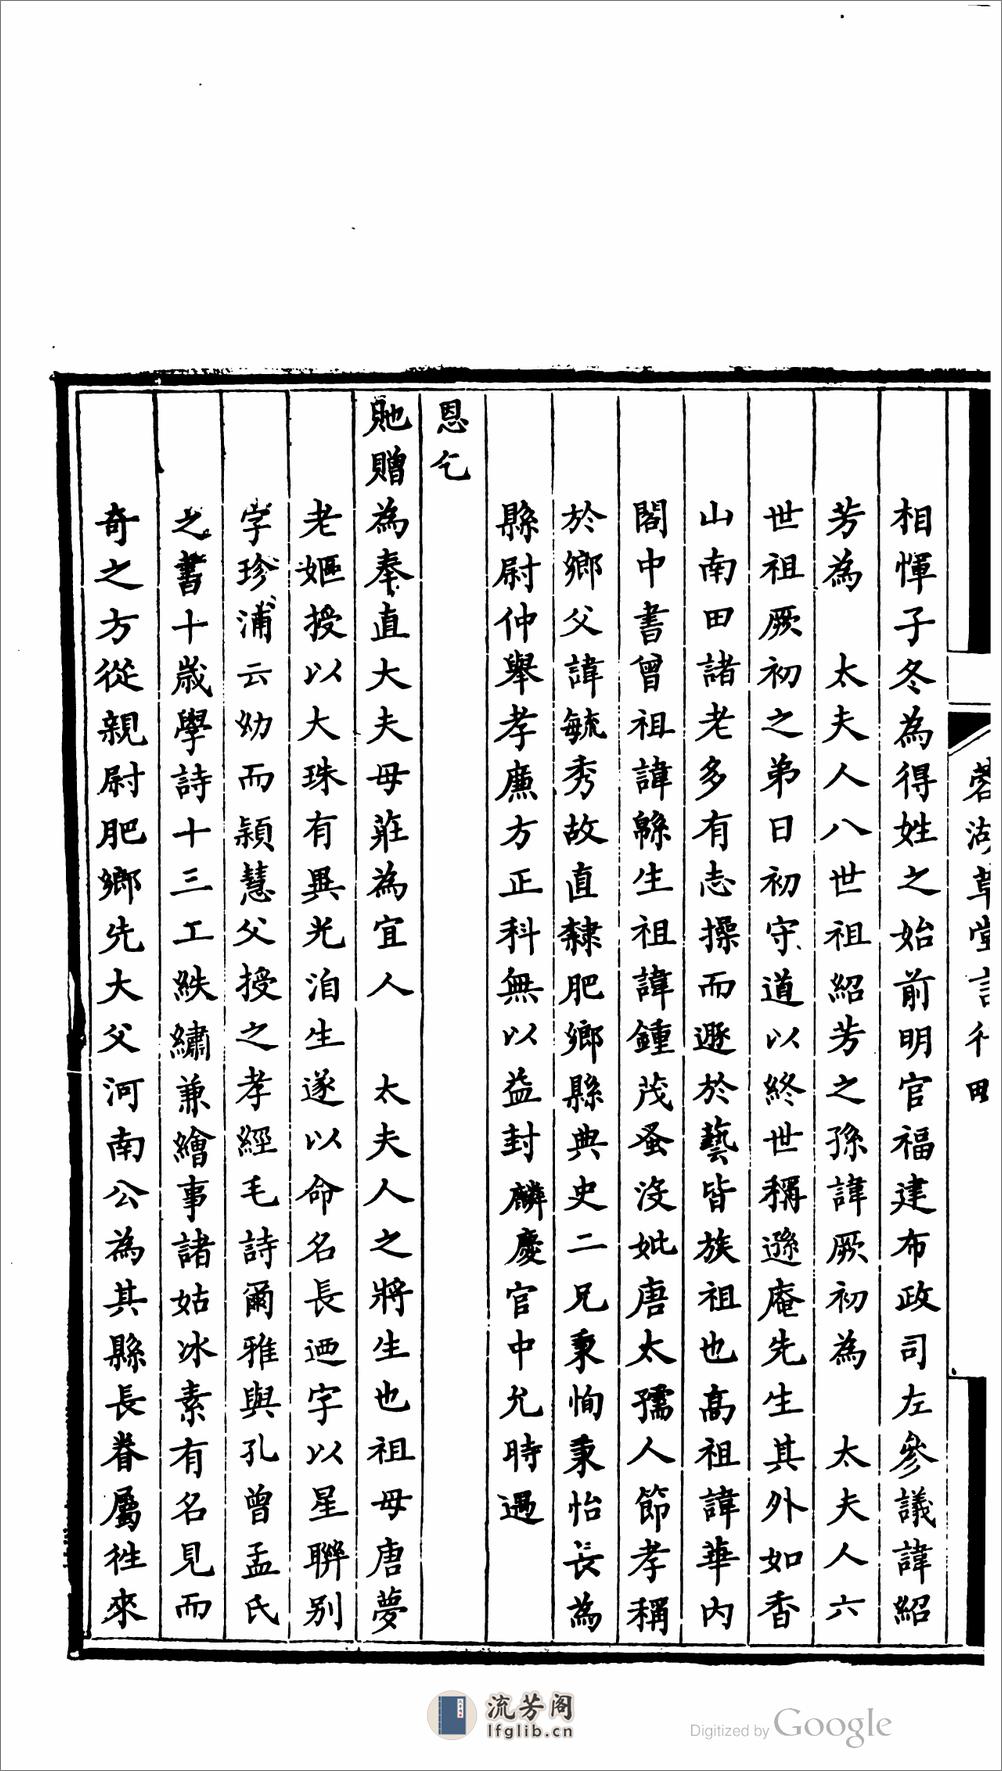 相惲子冬為得姓之始前明官福建布政司左參議諱紹
芳為　太夫人八世祖紹芳之孫諱厥初為　太夫人六
世祖厥初之弟日初守道以終世稱遜庵先生其外如香
山南田諸老多有志操而遯於藝皆族祖也高祖諱華内
閣中書曾祖諱緜生祖諱鍾茂蚤沒妣唐太孺人節孝稱
於鄉父諱毓秀故直隸肥鄉縣典史二兄秉恂秉怡長為
縣尉仲舉孝廉方正科無以益封麟慶官中允時遇
恩乞
貤贈為奉直大夫母莊為宜人　太夫人之將生也祖母唐夢
老嫗授以大珠有異光洎生遂以命名長迺字以星聯別
字珍浦云幼而穎慧父授之孝經毛詩爾雅與孔曾孟氏
之書十歲學詩十三工紩繡兼繪事諸姑冰素有名見而
奇之方從親尉肥鄉先大父河南公為其縣長眷屬徃來
蓉湖草堂
流芳阁
lfglib.cn
Digitized by Google